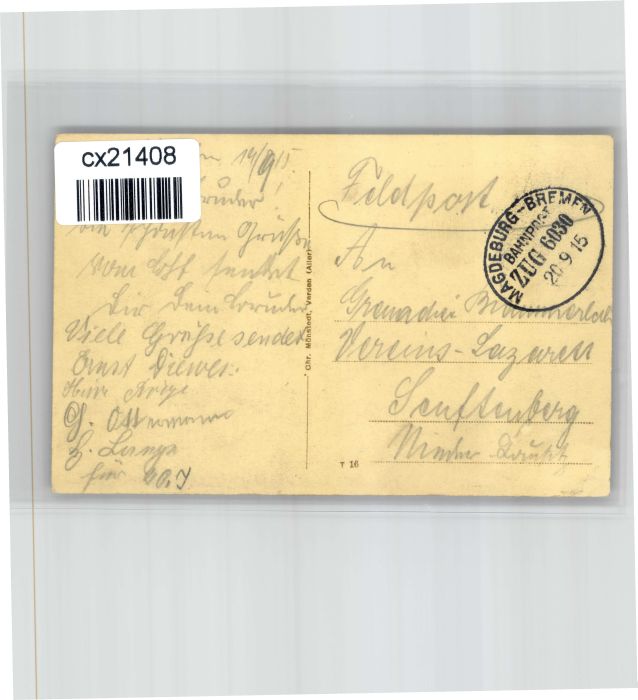 cx21408
19/9 15
Bruder!
die schönsten Grüße
vom sendet
Dir Dein Bruder
Viele Grüße sendet
Ernst Diewes.
G. Ostermann
H. Lange
für
Chr. Mönstedt, Verden (Aller)
T 16
Feldpost
MAGDEBURG-BREMEN
BAHNPOST
ZUG 6030
20 9 15
An
Grenadier
Vereins-Lazarett
Senftenberg
Nieder Lausitz